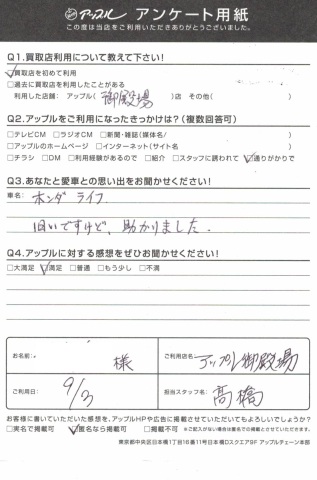 アップル アンケート用紙
この度は当店をご利用いただきありがとうございました。
Q1.買取店利用について教えて下さい!
☑買取店を初めて利用
□過去に買取店を利用したことがある
利用した店舗: アップル( 御殿場 )店 その他( )
Q2.アップルをご利用になったきっかけは?(複数回答可)
□テレビCM □ラジオCM □新聞・雑誌(媒体名/ )
□アップルのホームページ □インターネット(サイト名 )
□チラシ □DM □利用経験があるので □紹介 □スタッフに誘われて ☑通りがかりで
Q3.あなたと愛車との思い出をお聞かせください!
車名: ホンダ ライフ
旧いですけど、助かりました.
Q4.アップルに対する感想をぜひお聞かせください!
□大満足 ☑満足 □普通 □もう少し □不満
お名前: 様
ご利用店名 アップル御殿場
ご利用日 9/3
担当スタッフ名 高橋
お客様に書いていただいた感想を、アップルHPや広告に掲載させていただいてもよろしいでしょうか?
□実名で掲載可 ☑匿名なら掲載可 □掲載不可 ※ご記入がない場合は匿名での掲載とさせていただきます。
東京都中央区日本橋1丁目16番11号日本橋Dスクエア9F アップルチェーン本部